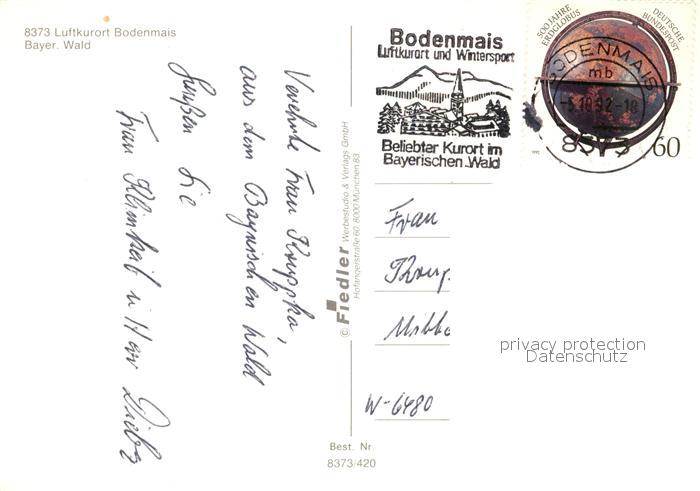 8373 Luftkurort Bodenmais
Bayer. Wald
Verehrte Frau Kruppka,
aus dem Bayrischen Wald
grüßen Sie
Frau Klimkeit u Herr
© Fiedler Werbestudio & Verlags GmbH
Hofangerstraße 60, 8000 München 83
Best. Nr.
8373/420
Bodenmais
Luftkurort und Wintersport
Beliebter Kurort im
Bayerischen Wald
500 JAHRE
ERDGLOBUS
DEUTSCHE
BUNDESPOST
60
BODENMAIS
mb
-5.10.92-18
8373
Frau
W-6480
privacy protection
Datenschutz